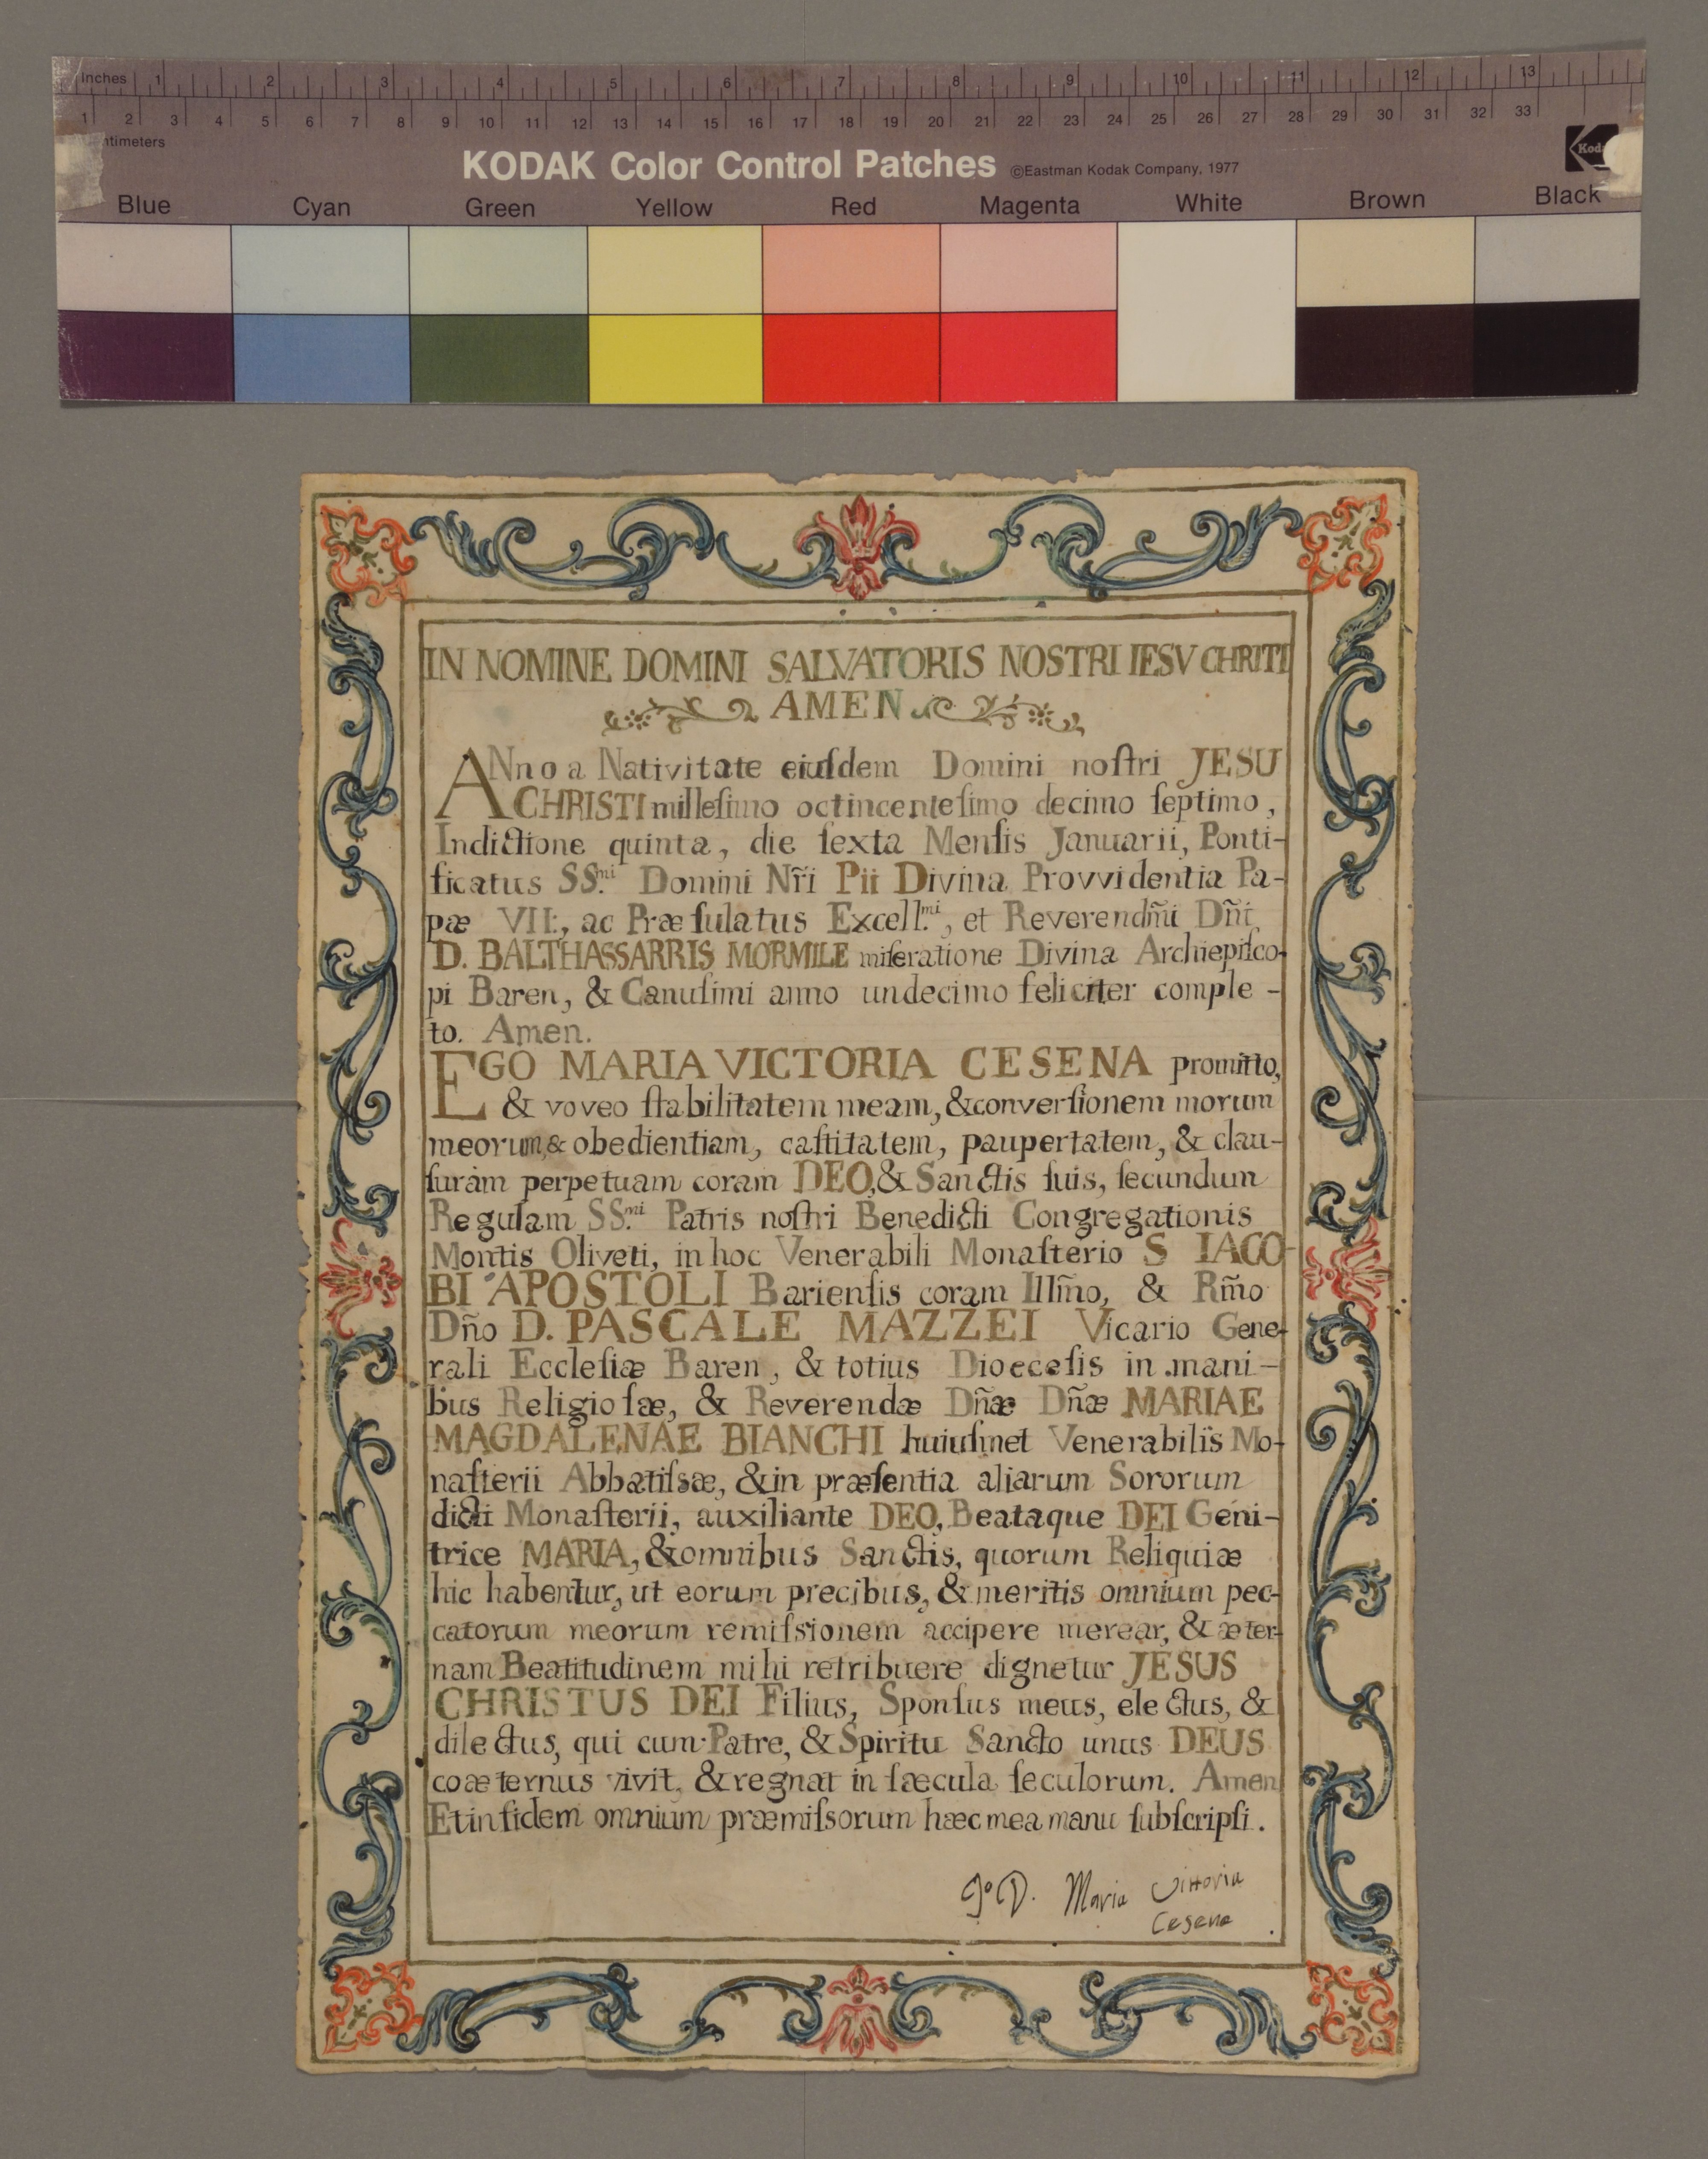 Inches 1 2 3 4 5 6 7 8 9 10 11 12 13
1 2 3 4 5 6 7 8 9 10 11 12 13 14 15 16 17 18 19 20 21 22 23 24 25 26 27 28 29 30 31 32 33
ntimeters
KODAK Color Control Patches ©Eastman Kodak Company, 1977
Kod
Blue Cyan Green Yellow Red Magenta White Brown Black
IN NOMINE DOMINI SALVATORIS NOSTRI IESV CHRITI
AMEN
ANno a Nativitate eiuſdem Domini noſtri JESU
CHRISTI milleſimo octincenteſimo decimo ſeptimo,
Indictione quinta, die ſexta Menſis Januarii, Ponti-
ficatus SS.mi Domini Nr̃i Pii Divina Provvidentia Pa-
pæ VII:, ac Præſulatus Excell.mi, et Reverendm̃i Dñi
D. BALTHASSARRIS MORMILE miſeratione Divina Archiepiſco-
pi Baren, & Canuſimi anno undecimo feliciter comple-
to. Amen.
EGO MARIA VICTORIA CESENA promitto,
& voveo ſtabilitatem meam, & converſionem morum
meorum, & obedientiam, caſtitatem, paupertatem, & clau-
ſuram perpetuam coram DEO, & Sanctis ſuis, ſecundum
Regulam SS.mi Patris noſtri Benedicti Congregationis
Montis Oliveti, in hoc Venerabili Monaſterio S IACO-
BI APOSTOLI Barienſis coram Illm̃o, & Rm̃o
Dño D. PASCALE MAZZEI Vicario Gene-
rali Eccleſiæ Baren, & totius Dioeceſis in mani-
bus Religioſæ, & Reverendæ Dñæ Dñæ MARIAE
MAGDALENAE BIANCHI huiuſmet Venerabilis Mo-
naſterii Abbatiſsæ, & in præſentia aliarum Sororum
dicti Monaſterii, auxiliante DEO, Beataque DEI Geni-
trice MARIA, & omnibus Sanctis, quorum Reliquiæ
hic habentur, ut eorum precibus, & meritis omnium pec-
catorum meorum remiſsionem accipere merear, & æter-
nam Beatitudinem mihi retribuere dignetur JESUS
CHRISTUS DEI Filius, Sponſus meus, electus, &
dilectus, qui cum Patre, & Spiritu Sancto unus DEUS
coæternus vivit, & regnat in ſæcula ſeculorum. Amen
Et in fidem omnium præmiſsorum hæc mea manu ſubſcripſi.
Jo D. Maria Vittoria
Cesena